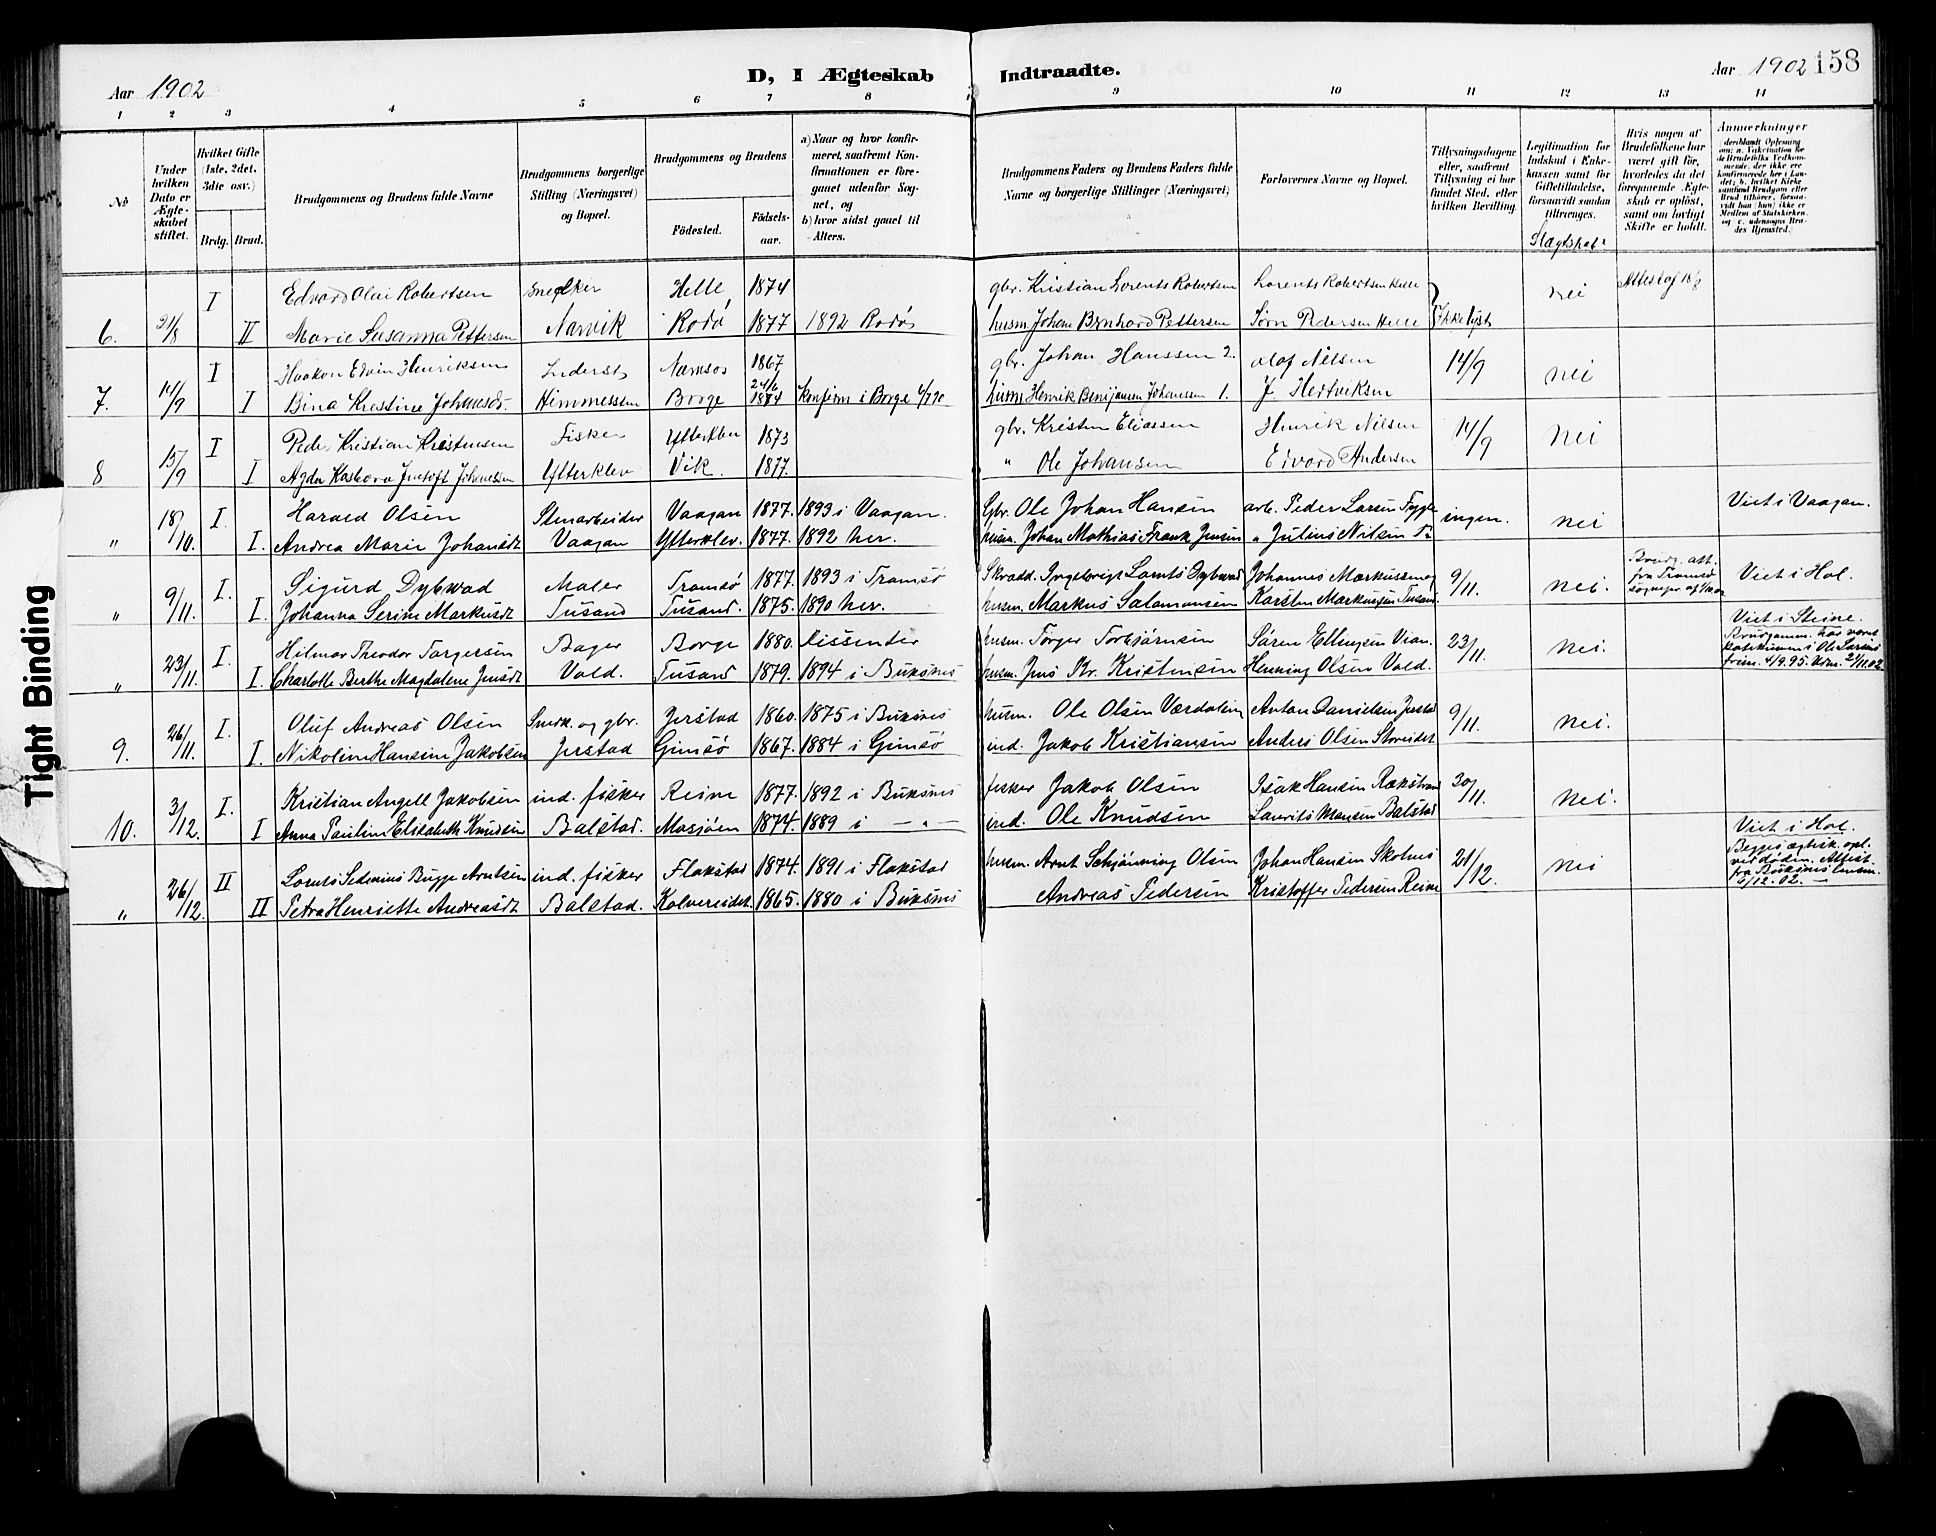 Aar 1902
D, I Ægteskab Indtraadte.
Aar 1902 158
1 2 3 4 5 6 7 8 9 10 11 12 13 14
No
Under hvilken Dato er Ægteskabet stiftet.
Hvilket Gifte (1ste, 2det, 3die osv.)
Brdg. Brud.
Brudgommens og Brudens fulde Navne
Brudgommens borgerlige Stilling (Næringsvei) og Bopæl.
Brudgommens og Brudens
Fødested. Fødselsaar.
a) Naar og hvor konfirmeret, saafremt Konfirmationen er foregaaet udenfor Sognet, og
b) hvor sidst gaaet til Alters.
Brudgommens Faders og Brudens Faders fulde Navne og borgerlige Stillinger (Næringsvei)
Forlovernes Navne og Bopæl.
Tillysningsdagene eller, saafremt Tillysning ei har fundet Sted, efter hvilken Bevilling.
Legitimation for Indskud i Enkekassen samt for Giftetilladelse, forsaavidt saadan tiltrænges.
Slægtskab
Hvis nogen af Brudefolkene har været gift før, hvorledes da det foregaaende Ægteskab er opløst, samt om lovligt Skifte er holdt.
Anmerkninger
6. 21/8 I Edvard Olai Robertsen Snedker Helle 1874 gbr. Kristian Lorents Robertsen Lorents Robertsen Helle Ikke lyst nei Attest af 18/8
II Marie Susanna Pettersen Narvik Rodø 1877 1892 Rodø husm. Johan Bernhard Pettersen Sørn Pedersen Helle
7. 14/9 I Haakon Edvin Henriksen Inderst Namsos 1867 gbr. Johan Hanssen 2. Olaf Nilsen 14/9 nei
I Bina Krestine Johansdt. Himmessen Borge 24/6 1874 konfirm i Borge 4/7 90 husm Henrik Benjamsen Johanssen 1. J. Hertviksen
8 15/9 I Peder Kristian Kristensen Fisker Ytterklev 1873 gbr. Kristen Eliassen Henrik Nilsen 14/9 nei
I Agda Johanssen Ytterklev Vik. 1877. " Ole Johansen Edvard Andersen
" 18/10. I. Harald Olsen Stenarbeider Vaagan 1877. 1893 i Vaagan. Gbr. Ole Johan Hansen arb. Peder Larsen ingen. nei Viet i Vaagan.
I. Andrea Marie Johansdt Vaagan Ytterklev. 1877. 1892 her. husm. Johan Mathias Frank Jensen " Julius Nilsen
" 9/11. I. Sigurd Dybwad Maler Tromsø 1877. 1893 i Tromsø Skrædd. Ingebrigt Lornts Dybwad Johannes Markussen og 9/11. nei. Brudg. att. fra Tromsø sognepr. Viet i Hol.
I. Johanna Serine Markusdt Tusand Tusand. 1875. 1890 her. husm. Markus Salamonsen Karsten Markussen Tusand.
" 23/11. I. Hilmar Theodor Torgersen Bager Borge 1880. Dissenter husm. Torger Torbjørnsen Søren Ellingsen Vian. 23/11. nei. Viet i Steine.
I. Charlotte Berthe Magdalene Jensdt Vold. Tusand 1879. 1894 i Buksnes husm. Jens Kr. Kristensen Henning Olsen Vold. Brudgomm. har været
9. 26/11. I. Oluf Andreas Olsen Smed. og gbr. Jerstad 1860. 1875 i Buksnes husm. Ole Olsen Værdaling Anton Danielsen Jerstad 9/11. nei.
I. Nikoline Hansine Jakobsen Jerstad Gimsø 1867. 1884 i Gimsø ind. Jakob Kristiansen Anders Olsen Storeidet
10. 3/12. I. Kristian Angell Jakobsen ind. fisker Reine 1877. 1892 i Buksnes fisker Jakob Olsen Isak Hansen Rækstran 30/11. nei.
I Anna Pauline Elisabeth Knudsen Balstad. Mosjøen 1874. 1889 i — " — ind. Ole Knudsen Laurits Monsen Balstad
" 26/12. II Lornts Sedenius Bugge Arntsen ind. fisker Flakstad 1874. 1891 i Flakstad husm. Arnt Schjønning Olsen Johan Hansen Skolnes 21/12. nei Viet i Hol. Begges ægtesk. opl. ved døden. Attest fra Buksnes lensm. 5/12.02.
II Petra Henriette Andreasdt Balstad. Kalvereidet. 1865. 1880 i Buksnes Andreas Pedersen Kristoffer Pedersen Reine
Tight Binding